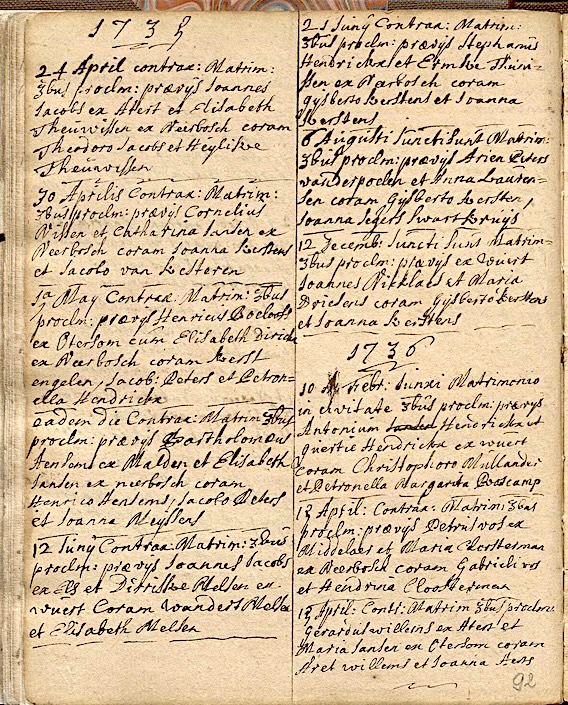 1735
24 April contrax: Matrim:
3bus proclm: prævys Joannes
Jacobs ex Afert et Elisabeth
Theunissen ex Neerbosch coram
Theodoro Jacobs et Heylike
Theunissen
30 Aprilis Contrax: Matrim:
3bus proclm: prævys Cornelius
Nissen et Chtharina Jansen ex
Neerbosch coram Joanna Kerstens
et Jacobo van Kesteren
May Contrax: Matrim: 3bus
proclm: prævys Henricus Roelofs
ex Otersom cum Elisabeth Dirickx
ex Neerbosch coram Kerst
engelen, Jacob: Peters et Petron=
ella Hendrickx
eadem die Contrax: Matrim 3bus
proclm: prævys Bartholomæus
Hensens ex Malden et Elisabeth
Jansen ex neerbosch coram
Henrico Hensens, Jacobo Peters
et Joanna Meyssens
12 Juny Contrax: Matrim: 3bus
proclm: prævys Joannes Jacobs
ex et Dirriske Melsen ex
wuert Coram wanders Melsen
et Elisabeth Melsen
21 Juny Contrax: Matrim:
3bus proclm: prævys Stephanus
Hendrickx et Ermke Theuni=
ssen ex Neerbosch coram
Gysberto Kerstens et Joanna
Kerstens
6 Augusti Juncti Sunt Matrim:
3bus proclm: prævys Arien Peters
vanderpoelen et Anna Lauren=
sen coram Gysberto Kersten,
Joanna Segers Swartkruys
12 Decemb: Juncti Sunt Matrim=
3bus proclm: prævys ex wuert
Joannes Nicklaes et Maria
Driesens coram Gysberto Kerstens
et Joanna Kerstens
1736
10 Febr: Junxi Matrimonio
in civitate 3bus proclm: prævys
Antonium Hendrickx et
Guertie Hendrickx ex wuert
coram Christophoro Mullander
et Petronella Margarita Poascamp
13 April: Contrax: Matrim: 3bus
proclm: prævys Petrus vos ex
Middelaer et Maria Cloosterman
ex Neerbosch coram Gabrieli vos
et Hendrina Cloosterman
13 April: Contr: Matrim 3bus proclm:
Gerardus willems ex Afert et
Maria Jansen ex Otersom coram
Aret willems et Joanna Aerts
92